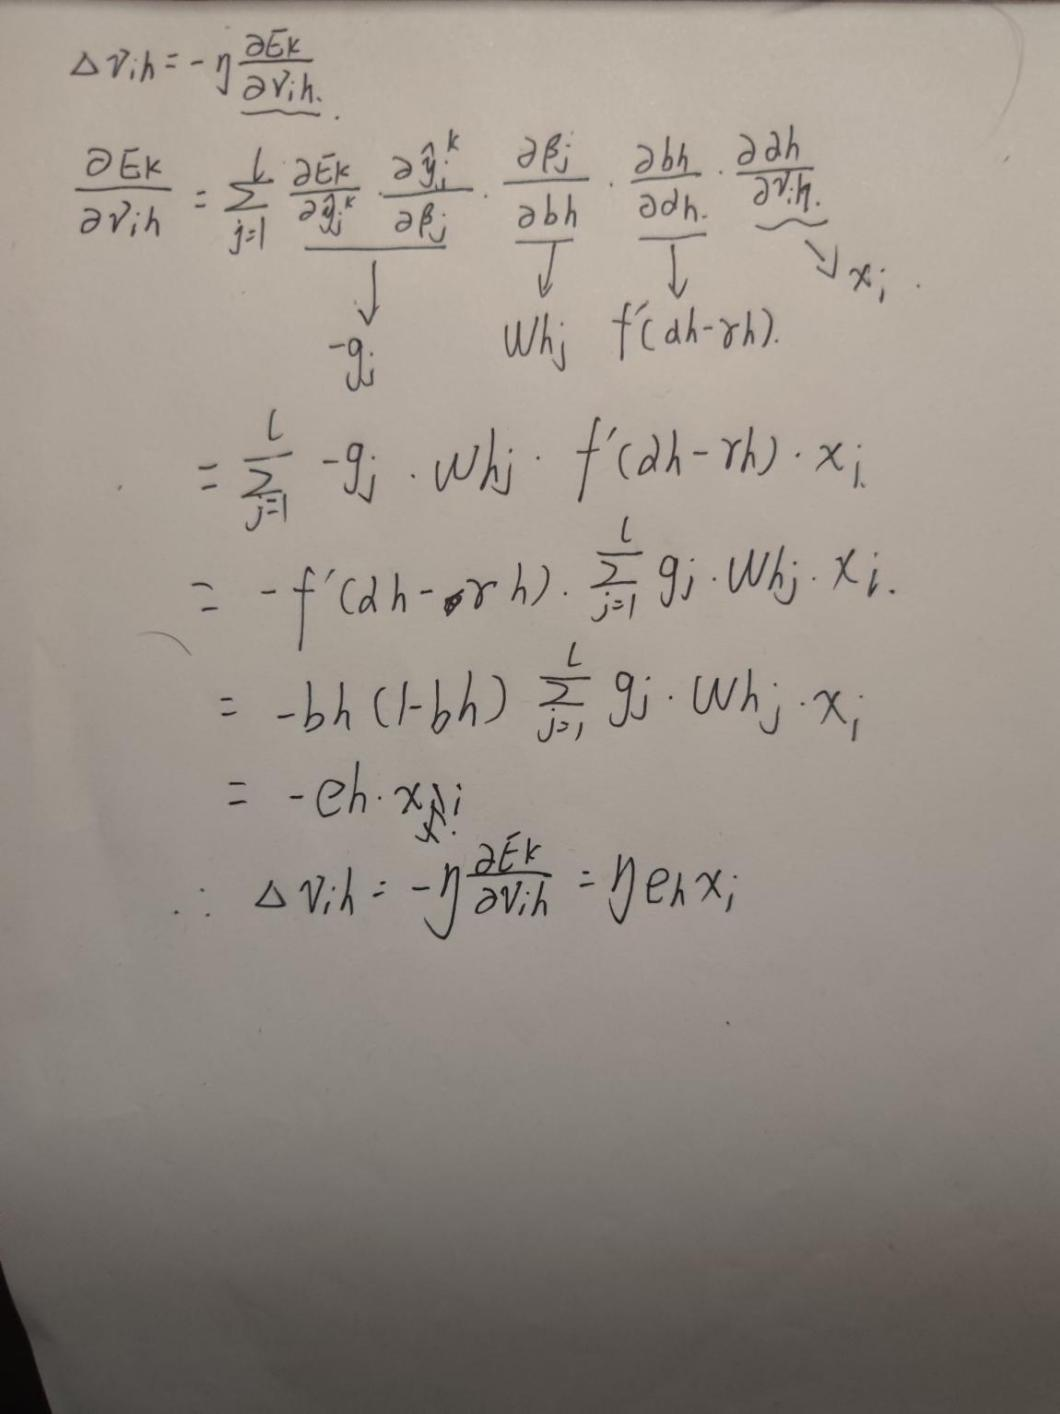 Δvih = -η ∂Ek/∂vih.
∂Ek/∂vih = Σ_{j=1}^{l} ∂Ek/∂ŷj^k · ∂ŷj^k/∂βj · ∂βj/∂bh · ∂bh/∂αh. · ∂αh/∂vih.
-gj whj f'(αh-γh). xi.
= Σ_{j=1}^{l} -gj · whj · f'(αh-γh) · xi.
= -f'(αh-γh) · Σ_{j=1}^{l} gj · whj · xi.
= -bh(1-bh) Σ_{j=1}^{l} gj · whj · xi
= -eh · xi
∴ Δvih = -η ∂Ek/∂vih = η eh xi